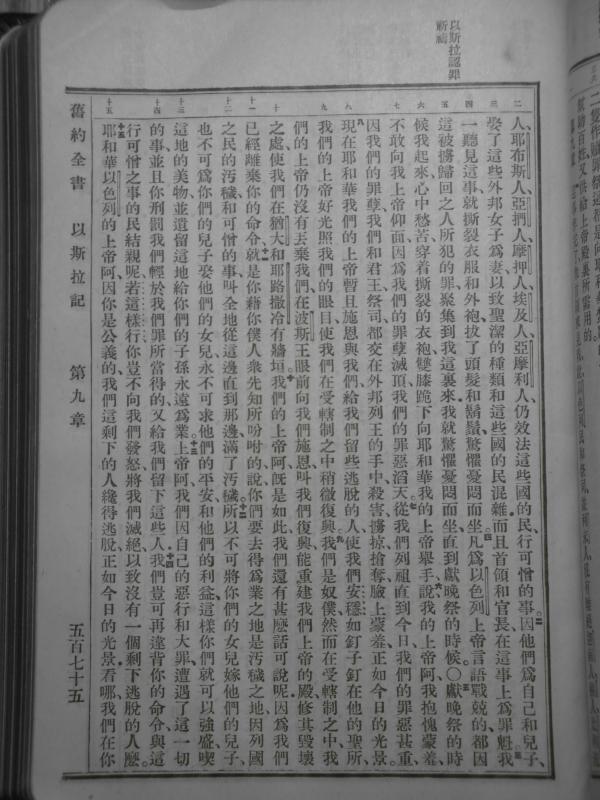 以斯拉認罪
祈禱
人、耶布斯人、亞捫人、摩押人、埃及人、亞摩利人、仍效法這些國的民、行可憎的事。因他們爲自己和兒子、
娶了這些外邦女子爲妻、以致聖潔的種類和這些國的民混雜、而且首領和官長、在這事上爲罪魁。我
一聽見這事、就撕裂衣服和外袍、拔了頭髮和鬍鬚、驚懼憂悶而坐。凡爲以色列上帝言語戰兢的、都因
這被擄歸回之人所犯的罪、聚集到我這裏來、我就驚懼憂悶而坐、直到獻晚祭的時候。〇獻晚祭的時
候我起來、心中愁苦、穿着撕裂的衣袍、雙膝跪下向耶和華我的上帝舉手、說、我的上帝阿、我抱愧蒙羞、
不敢向我上帝仰面、因爲我們的罪孽滅頂、我們的罪惡滔天。從我們列祖直到今日、我們的罪惡甚重、
因我們的罪孽、我們和君王祭司、都交在外邦列王的手中、殺害、擄掠、搶奪、臉上蒙羞、正如今日的光景。
現在耶和華我們的上帝、暫且施恩與我們、給我們留些逃脫的人、使我們安穩、如釘子釘在他的聖所、
我們的上帝好光照我們的眼目、使我們在受轄制之中稍微復興。我們是奴僕、然而在受轄制之中、我
們的上帝仍沒有丟棄我們、在波斯王眼前向我們施恩、叫我們復興、能重建我們上帝的殿、修其毀壞
之處、使我們在猶大和耶路撒冷有牆垣。我們的上帝阿、旣是如此、我們還有甚麼話可說呢、因爲我們
已經離棄你的命令、就是你藉你僕人衆先知所吩咐的、說、你們要去得爲業之地、是汚穢之地、因列國
之民的汚穢和可憎的事、叫全地從這邊直到那邊、滿了汚穢。所以不可將你們的女兒嫁他們的兒子、
也不可爲你們的兒子娶他們的女兒、永不可求他們的平安、和他們的利益、這樣你們就可以強盛、喫
這地的美物、並遺留這地給你們的子孫永遠爲業。上帝阿、我們因自己的惡行和大罪、遭遇了這一切
的事、並且你刑罰我們輕於我們罪所當得的、又給我們留下這些人、我們豈可再違背你的命令、與這
行可憎之事的民結親呢、若這樣行、你豈不向我們發怒、將我們滅絕、以致沒有一個剩下逃脫的人麼。
耶和華以色列的上帝阿、因你是公義的、我們這剩下的人纔得逃脫、正如今日的光景、看哪、我們在你
舊約全書 以斯拉記 第九章 五百七十五